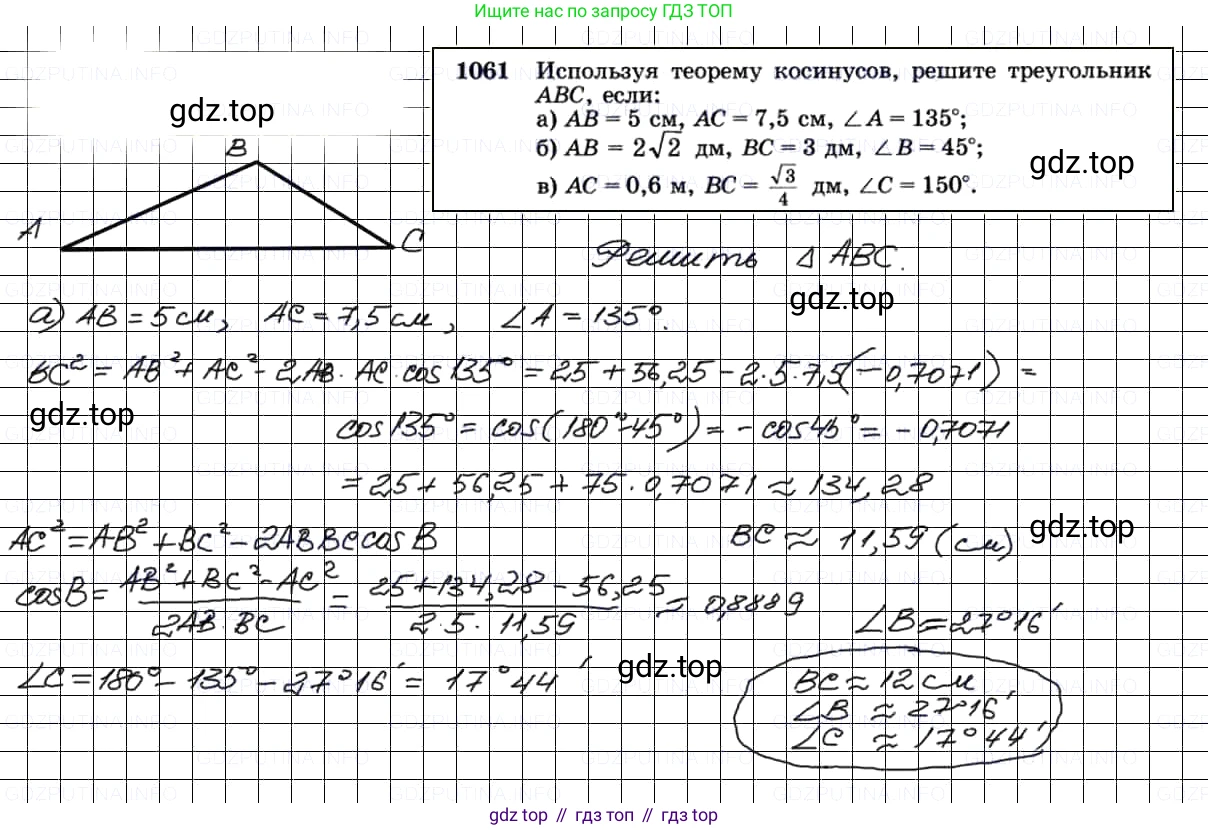 Ищите нас по запросу ГДЗ ТОП
1061 Используя теорему косинусов, решите треугольник
ABC, если:
а) AB = 5 см, AC = 7,5 см, ∠A = 135°;
б) AB = 2√2 дм, BC = 3 дм, ∠B = 45°;
в) AC = 0,6 м, BC = √3/4 дм, ∠C = 150°.
gdz.top
gdz.top
B
A
C
Решить Δ ABC.
gdz.top
а) AB = 5 см, AC = 7,5 см, ∠A = 135°.
BC² = AB² + AC² - 2AB · AC · cos 135° = 25 + 56,25 - 2·5·7,5(-0,7071) =
gdz.top
cos 135° = cos(180°-45°) = - cos 45° = - 0,7071
= 25 + 56,25 + 75 · 0,7071 ≈ 134,28
gdz.top
AC² = AB² + BC² - 2AB BC cos B
BC ≈ 11,59 (см)
cos B = AB² + BC² - AC² / 2AB · BC = 25 + 134,28 - 56,25 / 2 · 5 · 11,59 = 0,8889
∠B = 27°16'
∠C = 180° - 135° - 27°16' = 17°44'
gdz.top
BC ≈ 12 см
∠B ≈ 27°16'
∠C ≈ 17°44'
gdz top // гдз топ // gdz top
GDZPUTINA.INFO